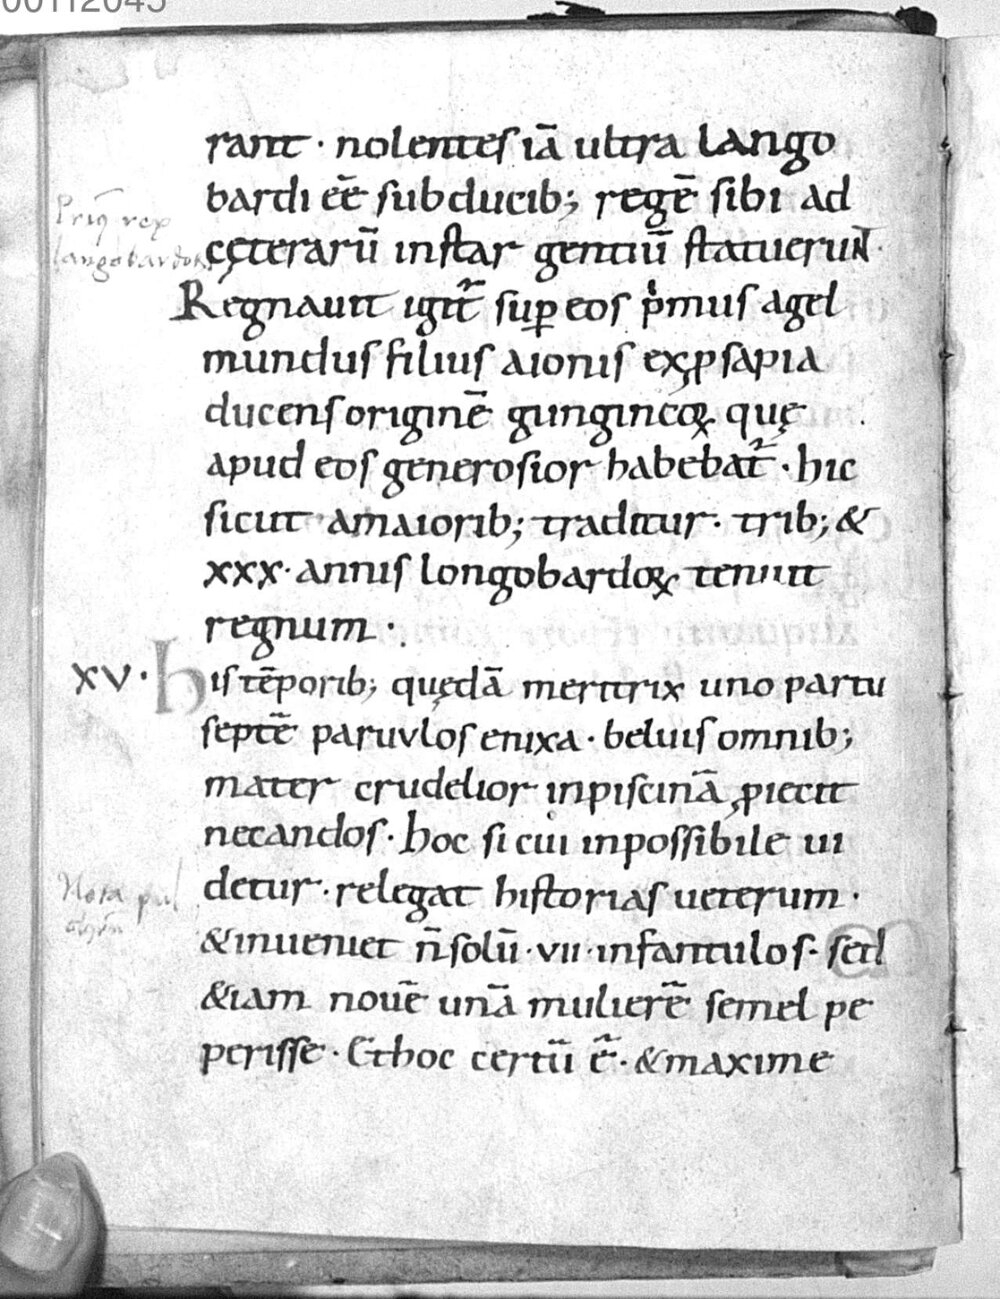 00112045
rant · nolentes iā ultra lango
bardi eē sub ducib; regē sibi ad
Prim̄ rex
cęterarū instar gentiū statuerunt ·
langobardor
Regnauit igit᷑ sup̱ eos p̍mus agel
mundus filius aionis ex ꝓsapia
ducens originē gungincoꝝ quę
apud eos generosior habebat᷑ · hic
sicut amaiorib; traditur · trib; &
xxx · annis longobardoꝝ tenuit
regnum ·
xv · His tēporib; quędā meritrix uno partu
septē paruulos enixa · beluis omnib;
mater crudelior inpiscinā ꝓiecit
necandos · hoc si cui inpossibile ui
detur · relegat historias ueterum ·
Nota
&inueniet n̄ solū · vii · infantulos · sed
&iam nouē unā mulierē semel pe
perisse · Ethoc certū ē · &maxime